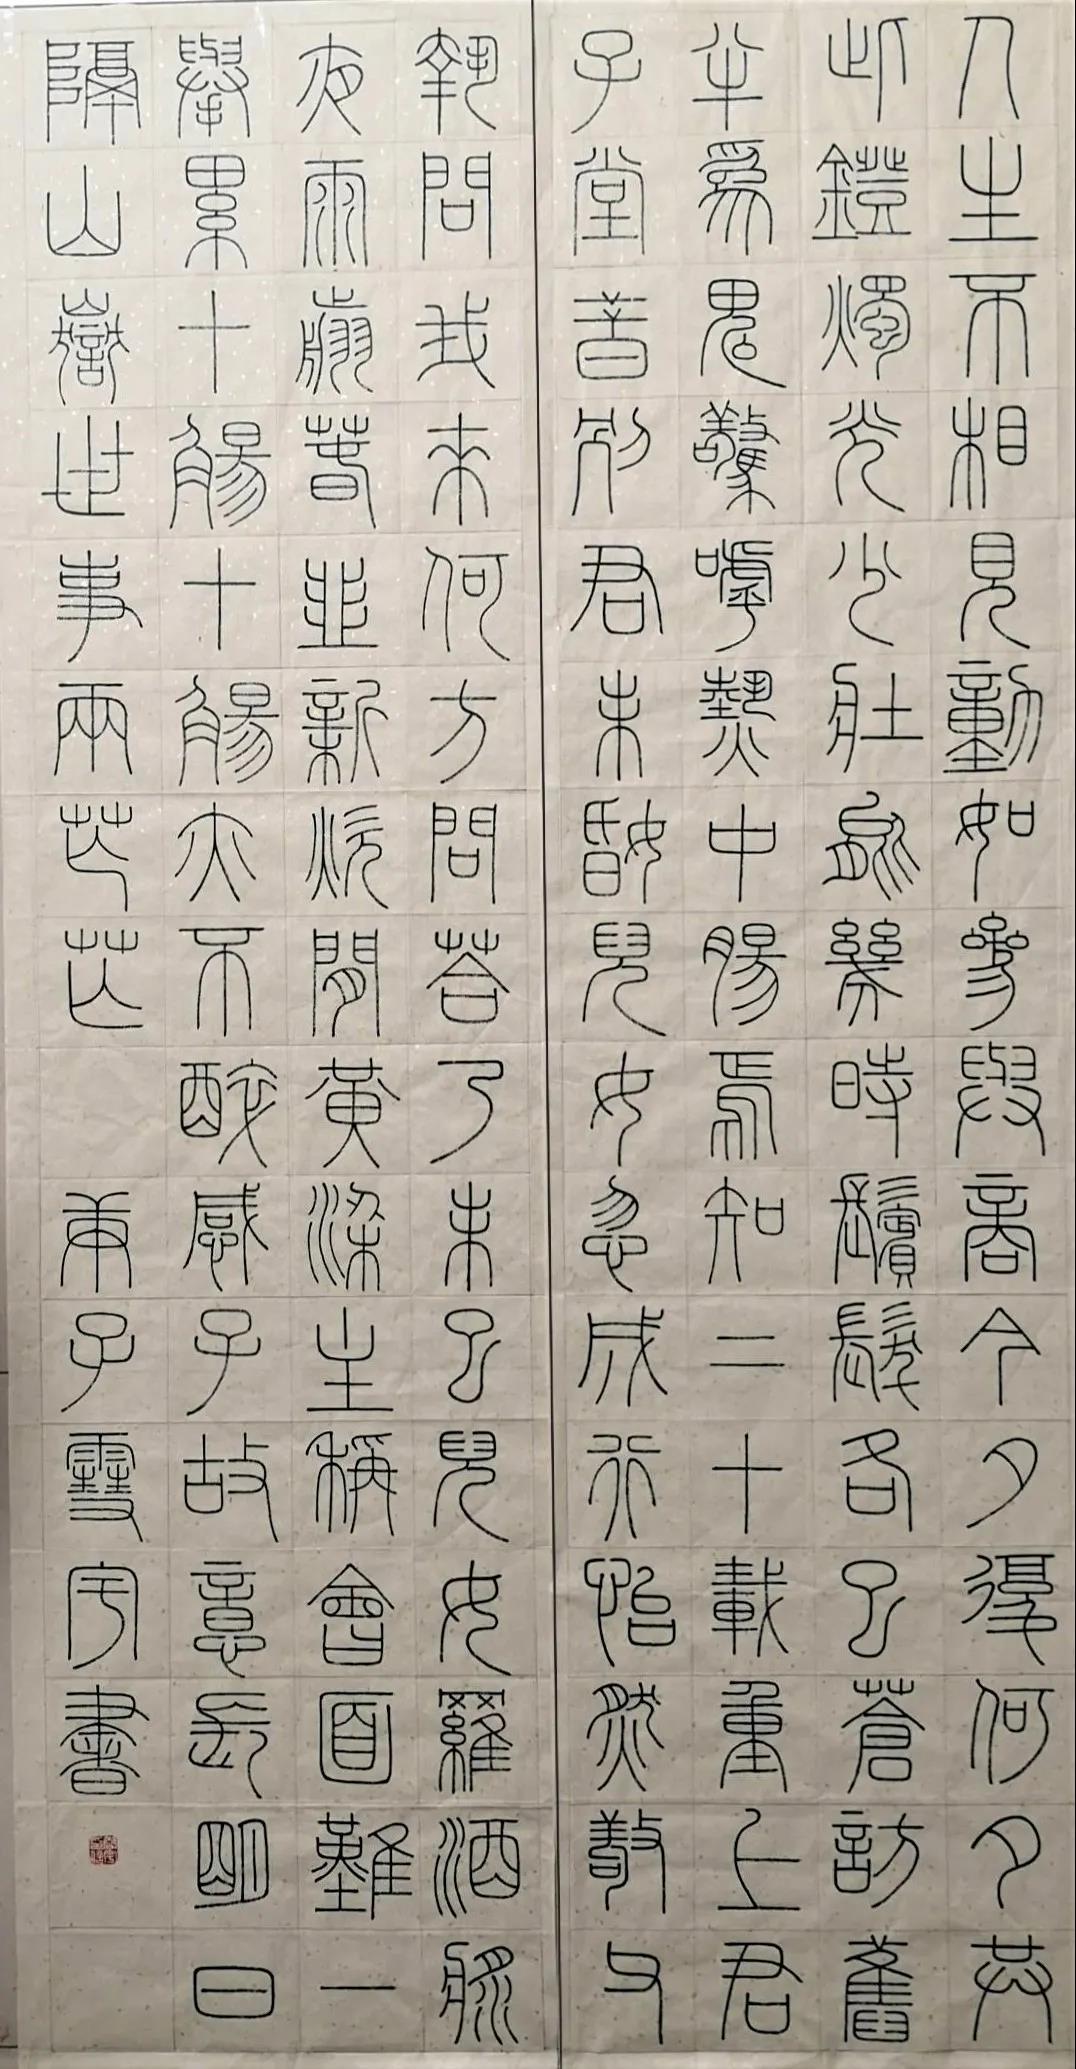 人生不相見動如參與商今夕復何夕共
此鐙燭光少壯能幾時鬢髮各已蒼訪舊
半為鬼驚嘑熱中腸焉知二十載重上君
子堂昔別君未婚兒女忽成行怡然敬父
執問我來何方問荅乃未已兒女羅酒漿
夜雨翦春韭新炊間黃粱主稱會面難一
舉累十觴十觴亦不醉感子故意長明日
隔山嶽世事兩茫茫 庚子雪書